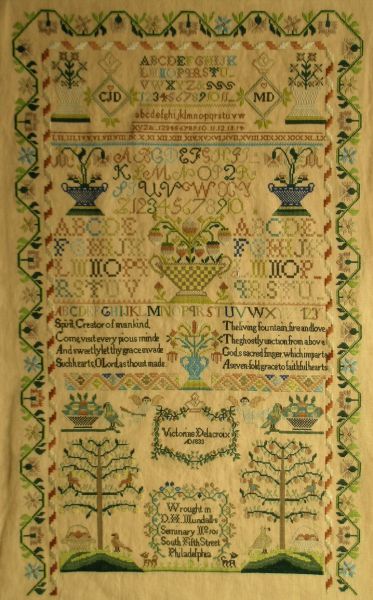 ABCDEFGHIJK
LMNOPQRSTU
VVWXYZ&
CJD
MD
1234567891011
abcdefghijklmnopqrstuvw
XYZ& 1 2 3 4 5 6 7 8 9 10 11 12 13 14
ABCDEFGHI
KLMNOPQR
STUVWXY
Z12345678910
ABCDE ABCDE
FGHIJK FGHIJK
LMNOP LMNOP
RSTUV QRSTU
ABCDEFGHIJKLMNOPQRSTUVWX 123
Spirit, Creator of mankind,
Come, visit every pious minde
And sweetly let thy grace invade
Such hearts, O Lord, as thou st made
The living fountain, fire and love
The ghostly unction from above
God's sacred finger, which imparts
A sevenfold grace to faithful hearts
Victorine Delacroix
AD 1833
Wrought in
D.H. Mundall's
Seminary No. 101
South Fifth Street
Philadelphia